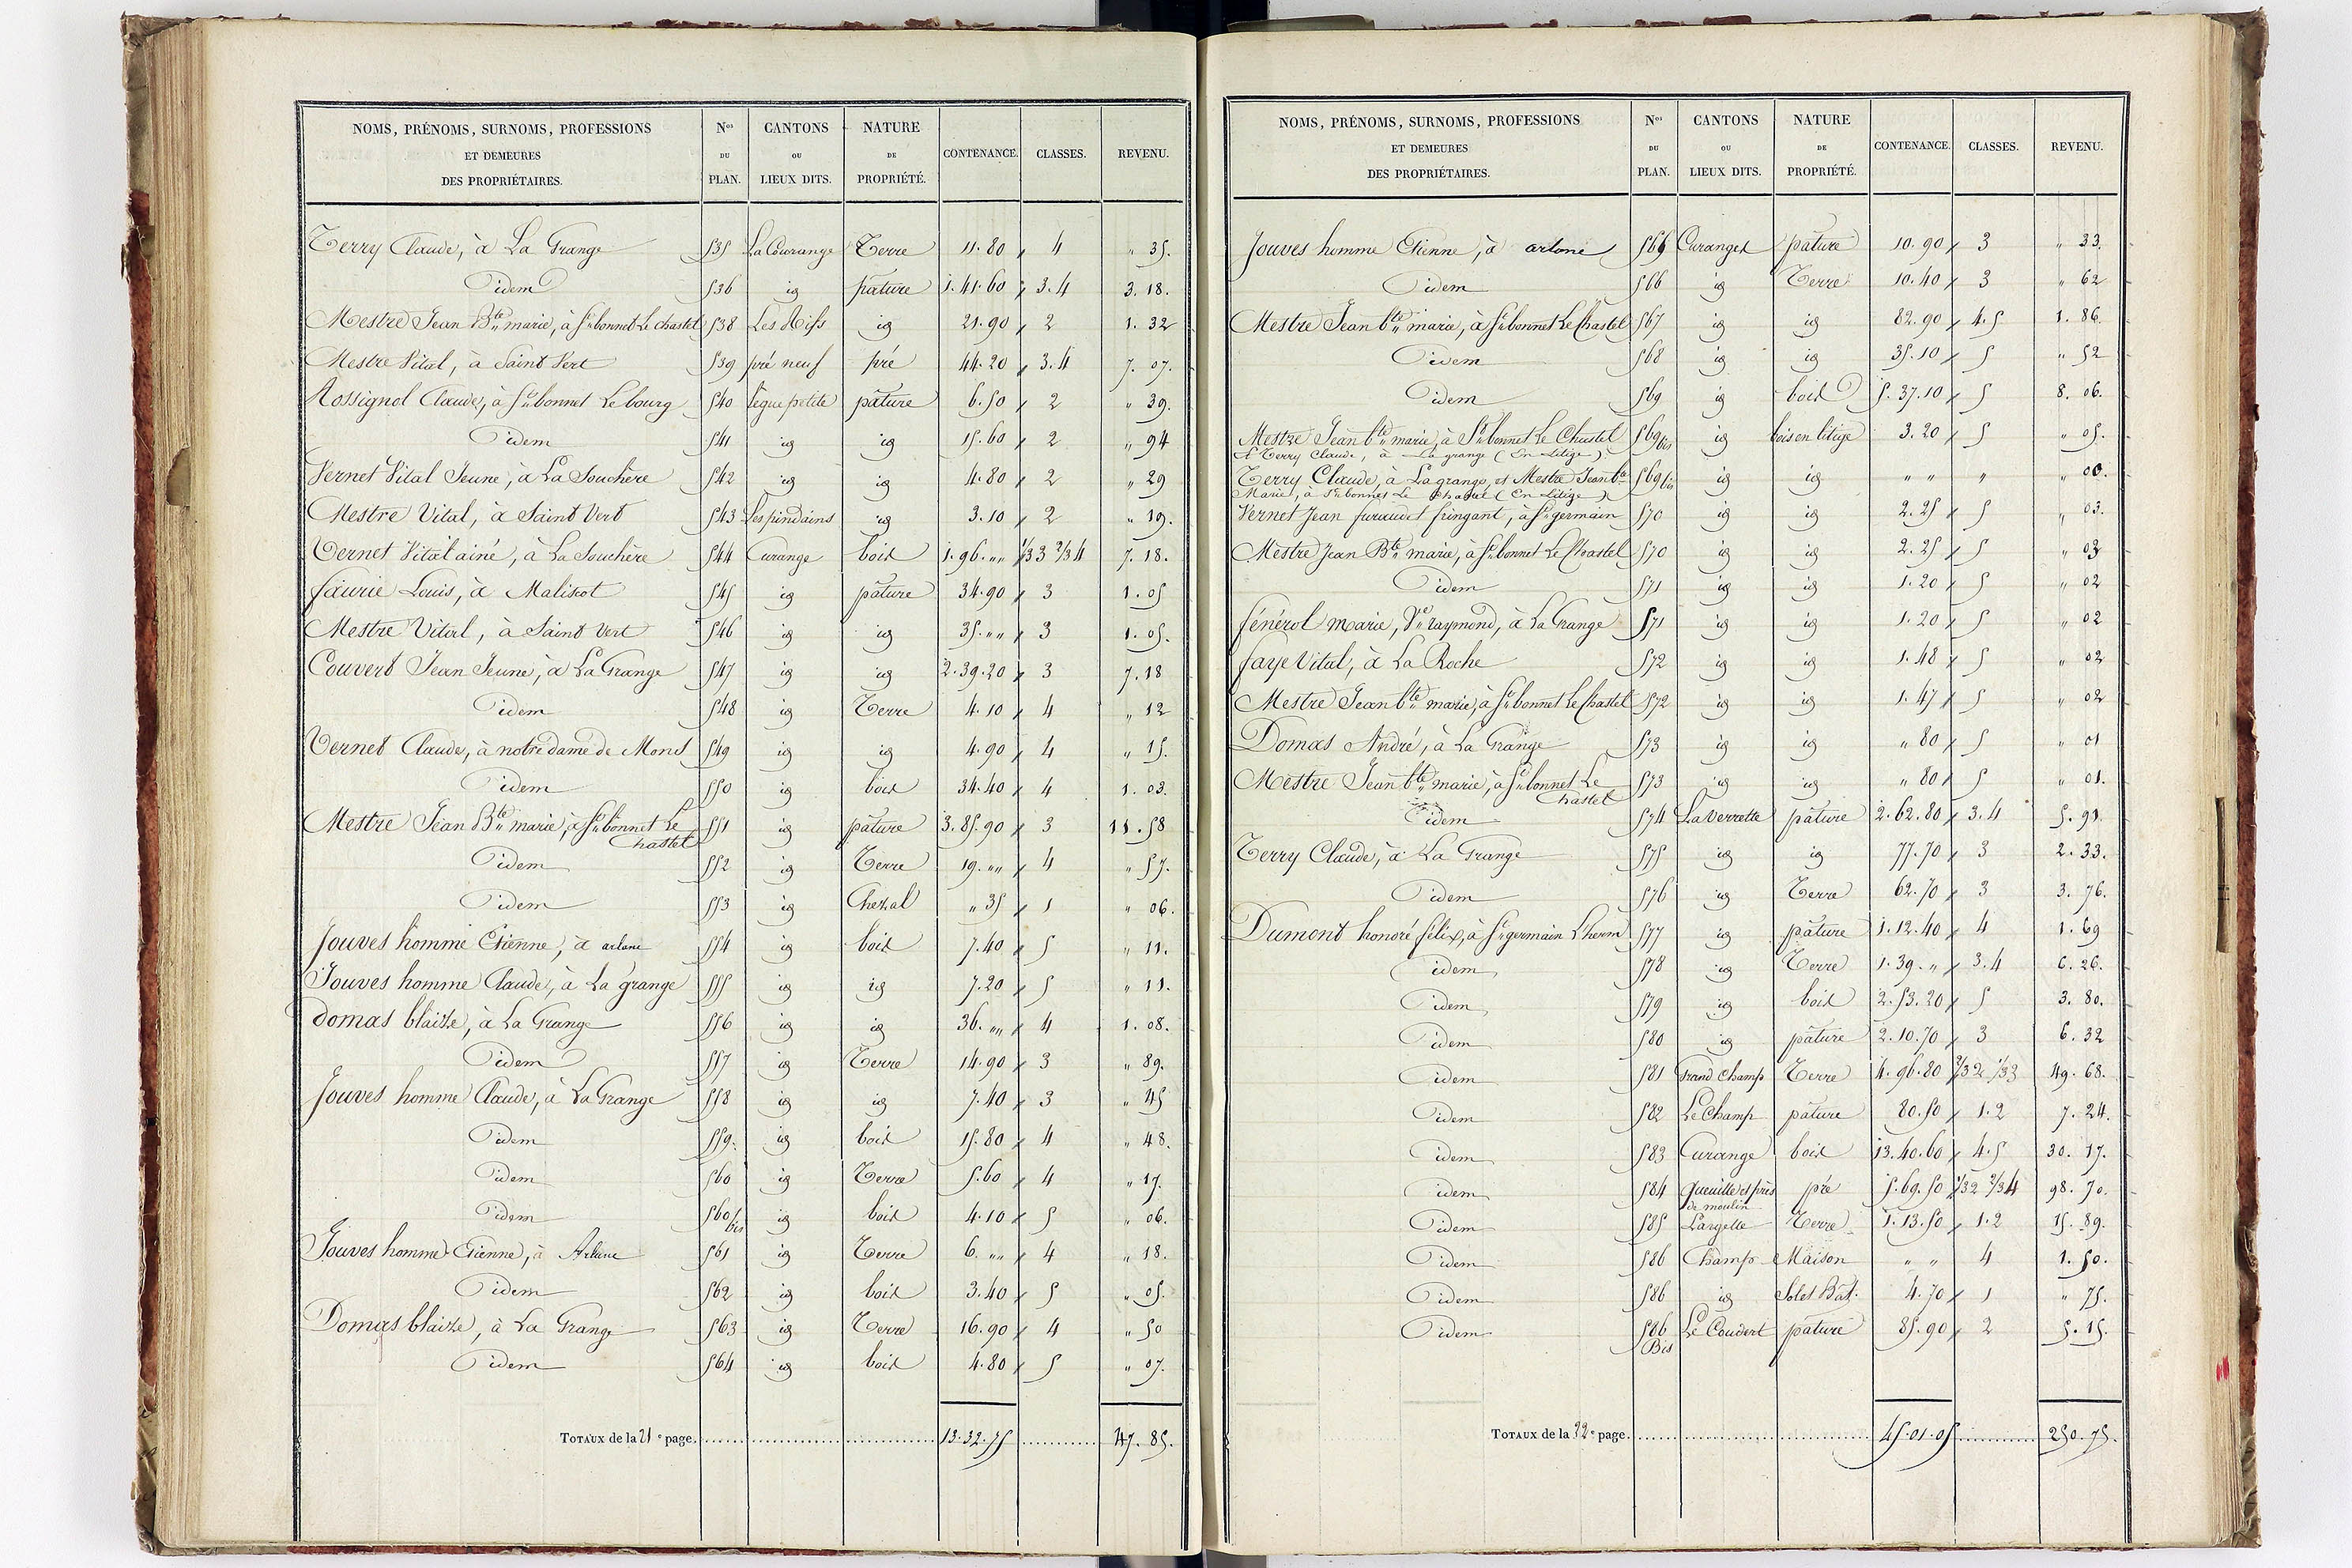 NOMS, PRÉNOMS, SURNOMS, PROFESSIONS ET DEMEURES DES PROPRIÉTAIRES. | Nos DU PLAN. | CANTONS OU LIEUX DITS. | NATURE DE PROPRIÉTÉ. | CONTENANCE. | CLASSES. | REVENU.
Terry Claude, à La Grange 535 La Courange Terre 11.80 4 " 35.
idem 536 id pature 1.41.60 3.4 3.18.
Mestre Jean Bte marie, à St bonnet Le chastel 538 Les Rifs id 21.90 2 1.32
Mestre Vital, à Saint Vert 539 pré neuf pré 44.20 3.4 7.07.
Rossignol Claude, à St bonnet Le bourg 540 petite pature 6.50 2 " 39.
idem 541 id id 15.60 2 " 94
Vernet Vital Jeune, à La Souchère 542 id id 4.80 2 " 29
Mestre Vital, à Saint Vert 543 Les pindains id 3.10 2 " 19.
Vernet Vital ainé, à La Souchère 544 Curange bois 1.96. "" 1/3 3 2/3 4 7.18.
faurie Louis, à Malissot 545 id pature 34.90 3 1.05
Mestre Vital, à Saint Vert 546 id id 35. "" 3 1.05.
Couvert Jean Jeune, à La Grange 547 id id 2.39.20 3 7.18
idem 548 id Terre 4.10 4 " 12
Vernet Claude, à notre dame de Mons 549 id id 4.90 4 " 15.
idem 550 id bois 34.40 4 1.03.
Mestre Jean Bte marie, à St bonnet Le chastel 551 id pature 3.85.90 3 11.58
idem 552 id Terre 19. "" 4 " 57.
idem 553 id Chezal " 35 1 " 06.
Jouves homme Etienne, à arlane 554 id bois 7.40 5 " 11.
Jouves homme Claude, à La grange 555 id id 7.20 5 " 11.
Domas blaize, à La Grange 556 id id 36. "" 4 1.08.
idem 557 id Terre 14.90 3 " 89.
Jouves homme Claude, à La Grange 558 id id 7.40 3 " 45
idem 559. id bois 15.80 4 " 48.
idem 560 id Terre 5.60 4 " 17.
idem 560 bis id bois 4.10 5 " 06.
Jouves homme Etienne, à Arlane 561 id Terre 6. "" 4 " 18.
idem 562 id bois 3.40 5 " 05.
Domas blaize, à La Grange 563 id Terre 16.90 4 " 50
idem 564 id bois 4.80 5 " 07.
TOTAUX de la 21e page. 13.32.75 47.85.
NOMS, PRÉNOMS, SURNOMS, PROFESSIONS ET DEMEURES DES PROPRIÉTAIRES. | Nos DU PLAN. | CANTONS OU LIEUX DITS. | NATURE DE PROPRIÉTÉ. | CONTENANCE. | CLASSES. | REVENU.
Jouves homme Etienne, à arlane Curanges pature 10.90 3 " 33.
idem 566 id Terre 10.40 3 " 62
Mestre Jean bte marie, à St bonnet Le Chastel 567 id id 82.90 4.5 1.86.
idem 568 id id 35.10 5 " 52
idem 569 id bois 5.37.10 5 8.06.
Mestre Jean bte marie, à St bonnet Le Chastel 569 bis id bois en litige 3.20 5 " 05.
et Terry Claude, à La grange (En Litige)
Terry Claude, à La grange, et Mestre Jean bte 569 bis id id " " " " 00.
Marie, à St bonnet Le Chastel (En Litige)
Vernet Jean furaud et fringant, à St germain 570 id id 2.25 5 " 03.
Mestre Jean Bte marie, à St bonnet Le Chastel 570 id id 2.25 5 " 03
idem 571 id id 1.20 5 " 02
fénérol marie, Ve raymond, à La Grange 571 id id 1.20 5 " 02
faye Vital, à La Roche 572 id id 1.48 5 " 02
Mestre Jean bte marie, à St bonnet Le Chastel 572 id id 1.47 5 " 02
Domas André, à La Grange 573 id id " 80 5 " 01
Mestre Jean bte marie, à St bonnet Le Chastel 573 id id " 80 5 " 01.
idem 574 La Verrette pature 2.62.80 3.4 5.91.
Terry Claude, à La Grange 575 id id 77.70 3 2.33.
idem 576 id Terre 62.70 3 3.76.
Dumont honoré félix, à St germain L'herm 577 id pature 1.12.40 4 1.69
idem 578 id Terre 1.39. " 3.4 6.26.
idem 579 id bois 2.53.20 5 3.80.
idem 580 id pature 2.10.70 3 6.32
idem 581 Grand Champ Terre 4.96.80 2/3 2 1/3 3 49.68.
idem 582 Le Champ pature 80.50 1.2 7.24.
idem 583 Curange bois 13.40.60 4.5 30.17.
idem 584 Queuille et près de moulin pré 5.69.50 1/3 2 2/3 4 98.70.
idem 585 Largelle Terre 1.13.50 1.2 15.89.
idem 586 Champ Maison " " 4 1.50.
idem 586 id Sol et Bat. 4.70 1 " 75.
idem 586 Bis Le Coudert pature 85.90 2 5.15.
TOTAUX de la 22e page. 45.01.05 250.75.